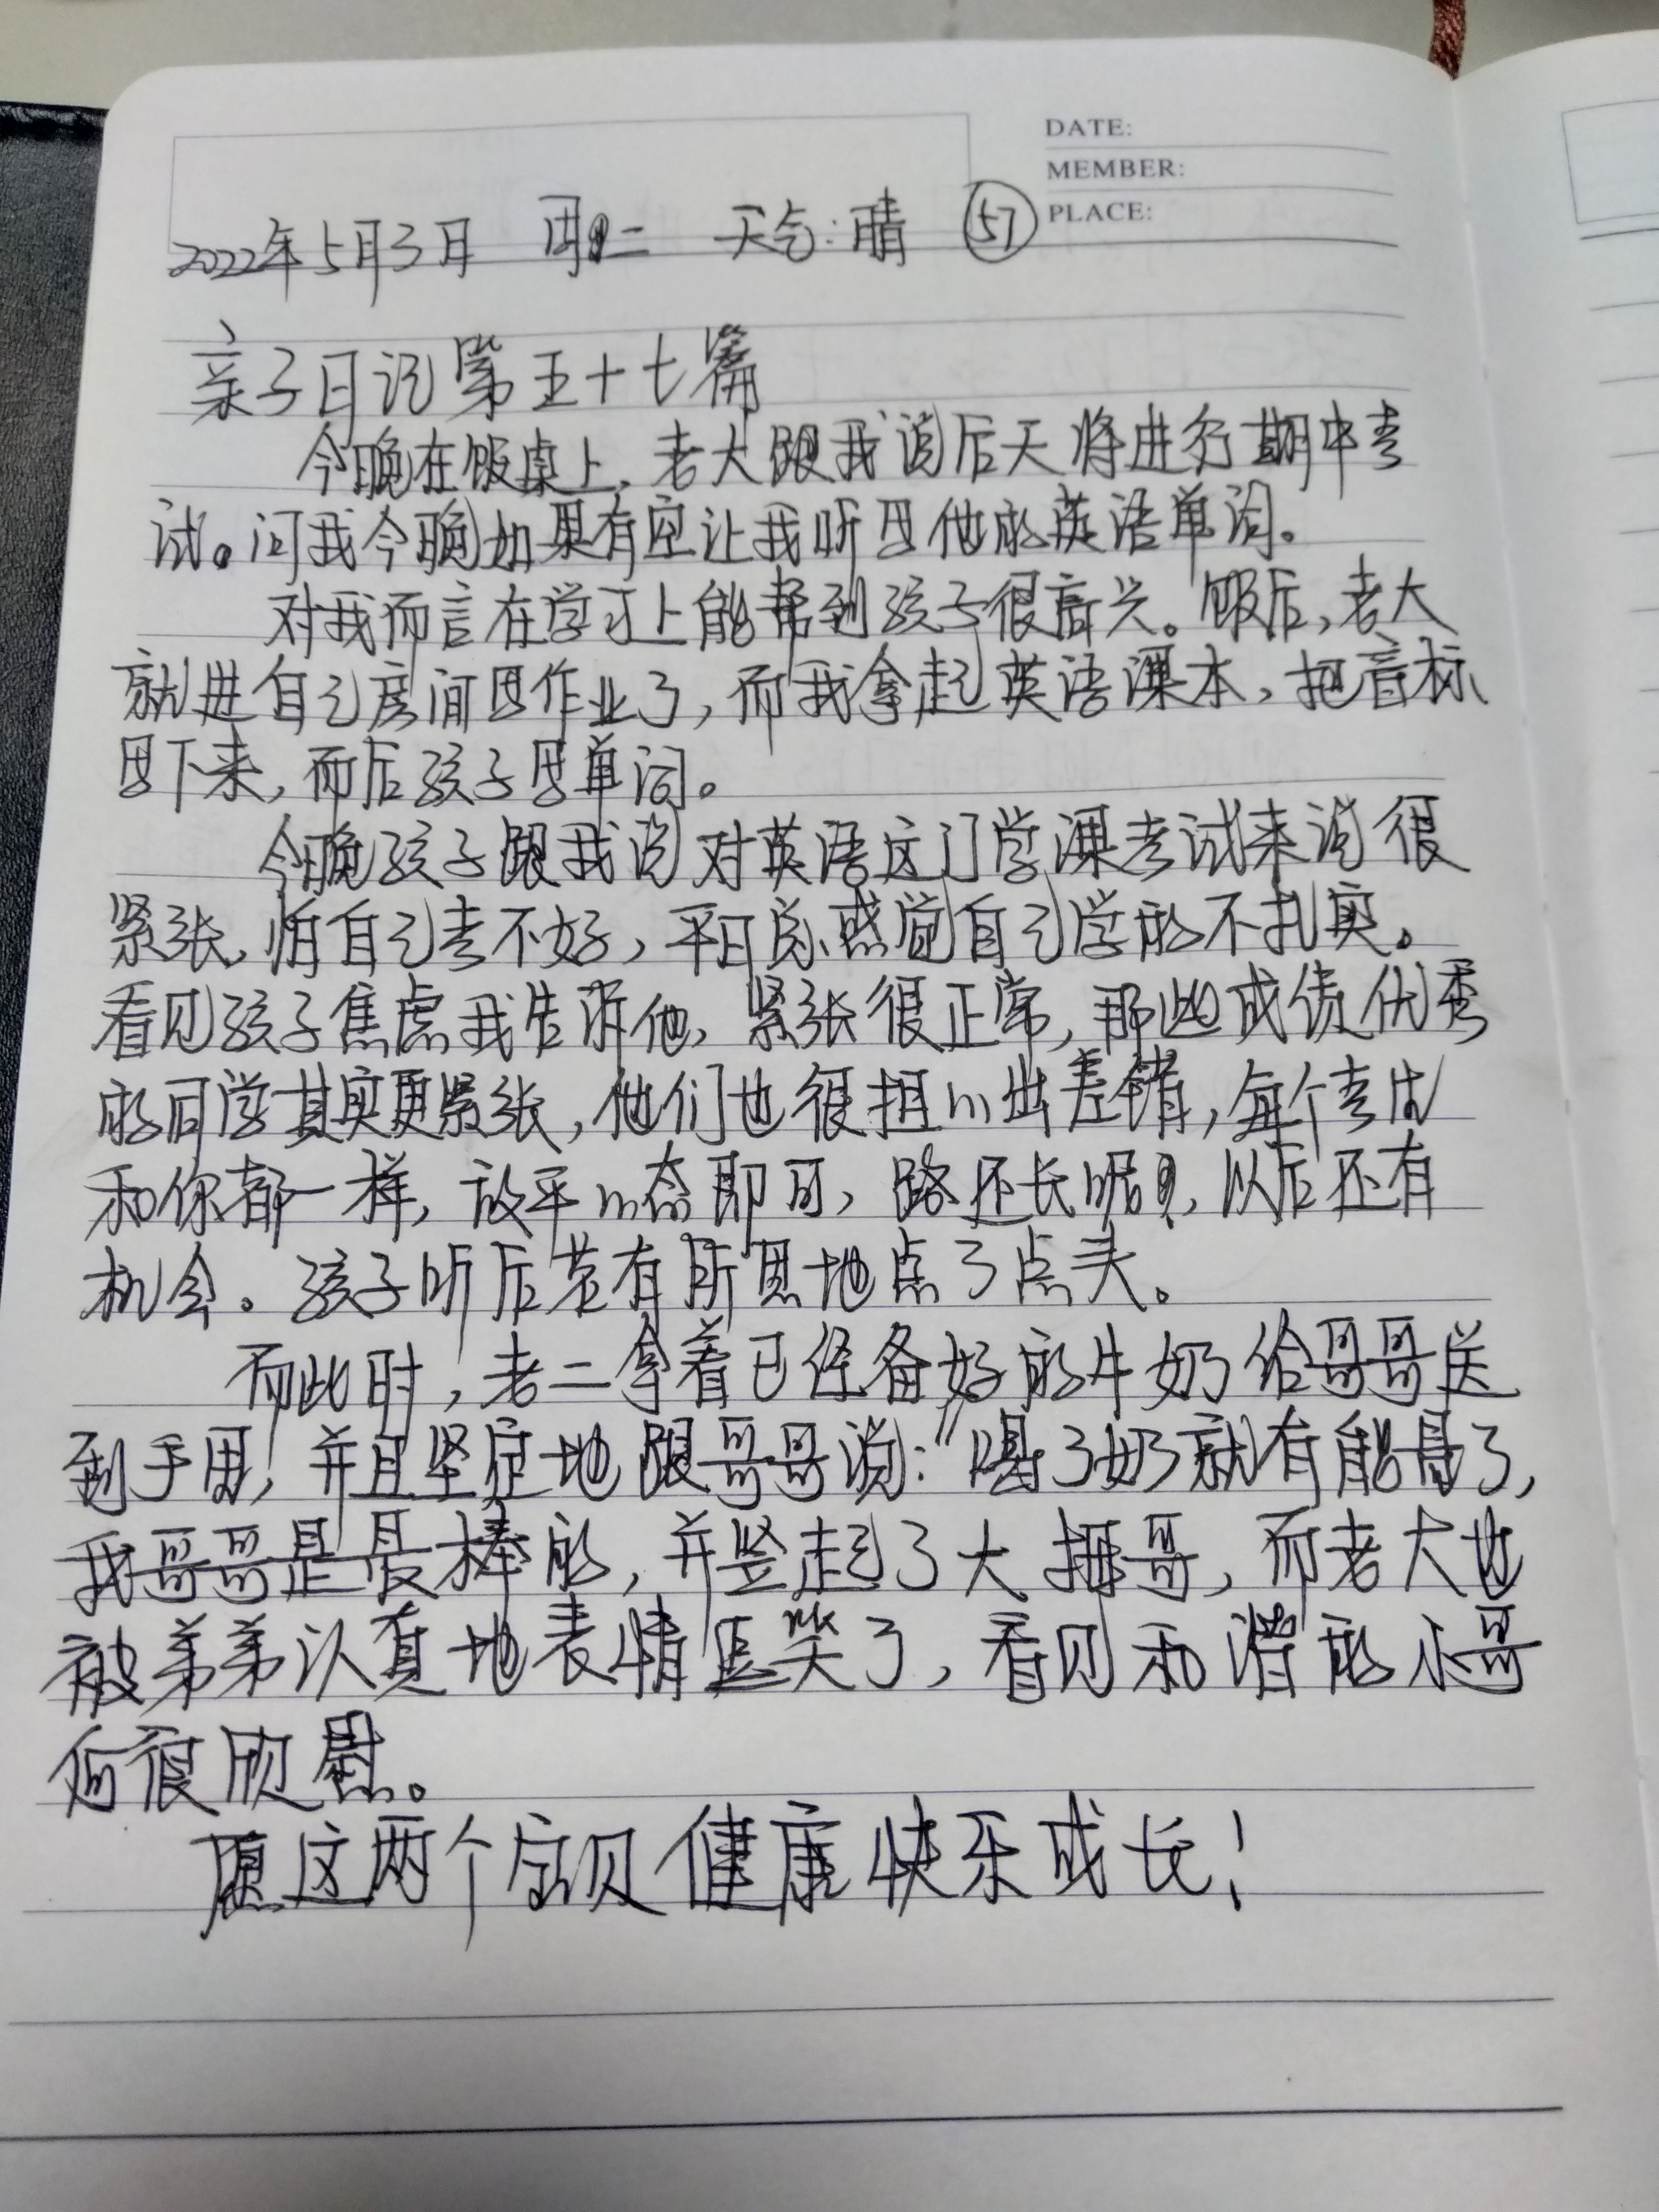 DATE:
MEMBER:
PLACE:
2022年5月3日 周二 天气:晴 57
亲子日记第五十七篇
今晚在饭桌上,老大跟我说后天将进行期中考
试。问我今晚如果有空让我听写他的英语单词。
对我而言在学习上能帮到孩子很高兴。饭后,老大
就进自己房间写作业了,而我拿起英语课本,把音标
写下来,而后孩子写单词。
今晚孩子跟我说对英语这门学课考试来说很
紧张,怕自己考不好,平日总感觉自己学的不扎实。
看见孩子焦虑我告诉他,紧张很正常,那些成绩优秀
的同学其实更紧张,他们也很担心出差错,每个考生
和你都一样,放平心态即可,路还长呢,以后还有
机会。孩子听后若有所思地点了点头。
而此时,老二拿着已经备好的牛奶给哥哥送
到手里,并且坚定地跟哥哥说:“喝了奶就有能量了,
我哥哥是最棒的,并竖起了大拇哥,而老大也
被弟弟认真地表情逗笑了,看见和谐的小哥
俩很欣慰。
愿这两个宝贝健康快乐成长!